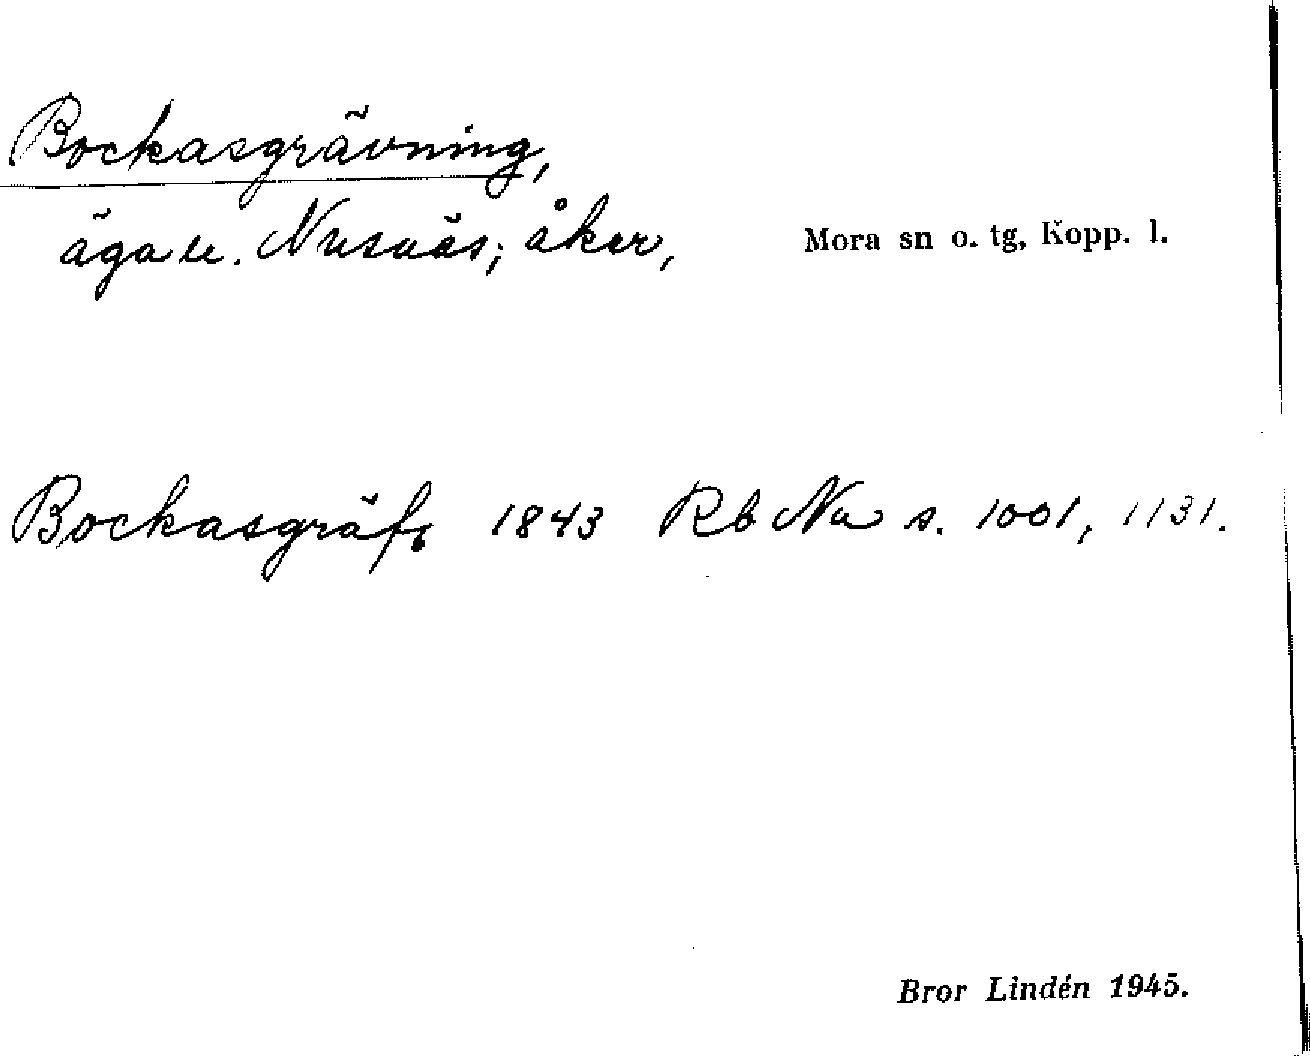 Bockasgrävning,
äga u. Nusnäs; åker,
Mora sn o. tg, Kopp. l.
Bockasgräfs 1843 Rb Nu s. 1001, 1131.
Bror Lindén 1945.